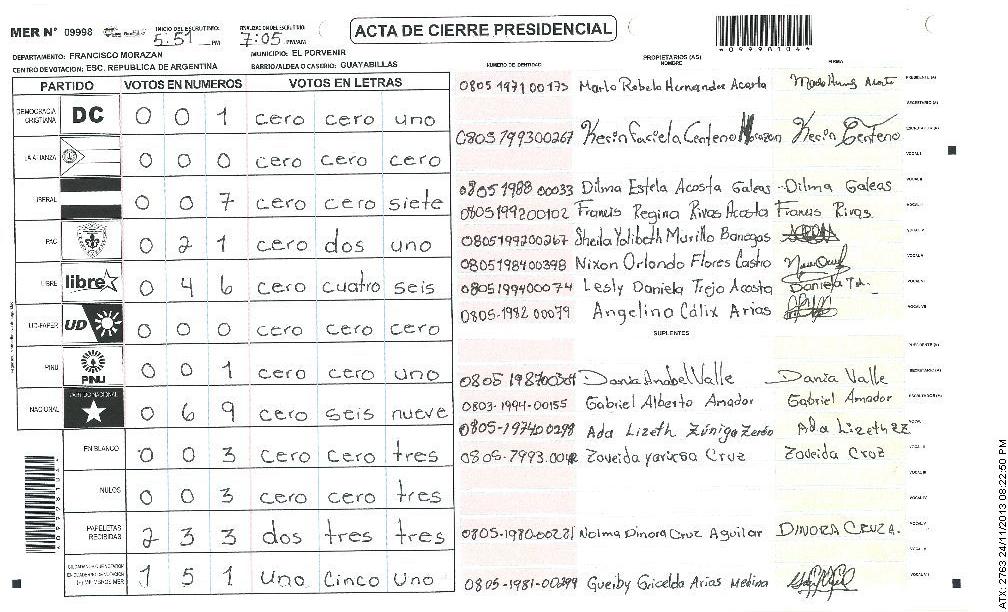 MER N° 09998 INICIO DEL ESCRUTINIO: 5:51 PM FINALIZACION DEL ESCRUTINIO: 7:05 PM/AM ACTA DE CIERRE PRESIDENCIAL
DEPARTAMENTO: FRANCISCO MORAZAN MUNICIPIO: EL PORVENIR
CENTRO DE VOTACION: ESC. REPUBLICA DE ARGENTINA BARRIO/ALDEA O CASERIO: GUAYABILLAS
PARTIDO VOTOS EN NUMEROS VOTOS EN LETRAS
DEMOCRACIA CRISTIANA DC 0 0 1 cero cero uno
LA ALIANZA 0 0 0 cero cero cero
LIBERAL 0 0 7 cero cero siete
PAC 0 2 1 cero dos uno
LIBRE libre 0 4 6 cero cuatro seis
UD-FAPER UD 0 0 0 cero cero cero
PINU PINU 0 0 1 cero cero uno
NACIONAL PARTIDO NACIONAL 0 6 9 cero seis nueve
EN BLANCO 0 0 3 cero cero tres
NULOS 0 0 3 cero cero tres
PAPELETAS RECIBIDAS 2 3 3 dos tres tres
1 5 1 Uno Cinco Uno
NUMERO DE IDENTIDAD PROPIETARIOS (AS) NOMBRE FIRMA
0805 1971 00173 Marlo Robelo Hernandez Acosta PRESIDENTE (A)
SECRETARIO (A)
0805199300267 Kecin Faciela Centeno Morazan Kecin Centeno ESCRUTADOR (A)
VOCAL I
0805 1988 00033 Dilma Estela Acosta Galeas Dilma Galeas
0805199200102 Francis Regina Rivas Acosta Francis Rivas
0805199200267 Sheila Yolibeth Murillo Banegas
0805198400398 Nixon Orlando Flores Castro
0805199400074 Lesly Daniela Trejo Acosta Daniela T.A.
0805-1982 00079 Angelino Cálix Arias
SUPLENTES
PRESIDENTE (A)
Dania Anabel Valle Dania Valle SECRETARIO (A)
0803-1994-00155 Gabriel Alberto Amador Gabriel Amador ESCRUTADOR (A)
0805-197400298 Ada Lizeth Zúniga Zerón Ada Lizeth ZZ
Zoveida yarixsa Cruz Zoveida Cruz
0805-1980-00221 Nolma Dinora Cruz Aguilar DINORA CRUZ A.
0805-1981-00299 Gueiby Gricelda Arias Medina
*099981044*
ATX-2763 24/11/2013 08:22:50 PM